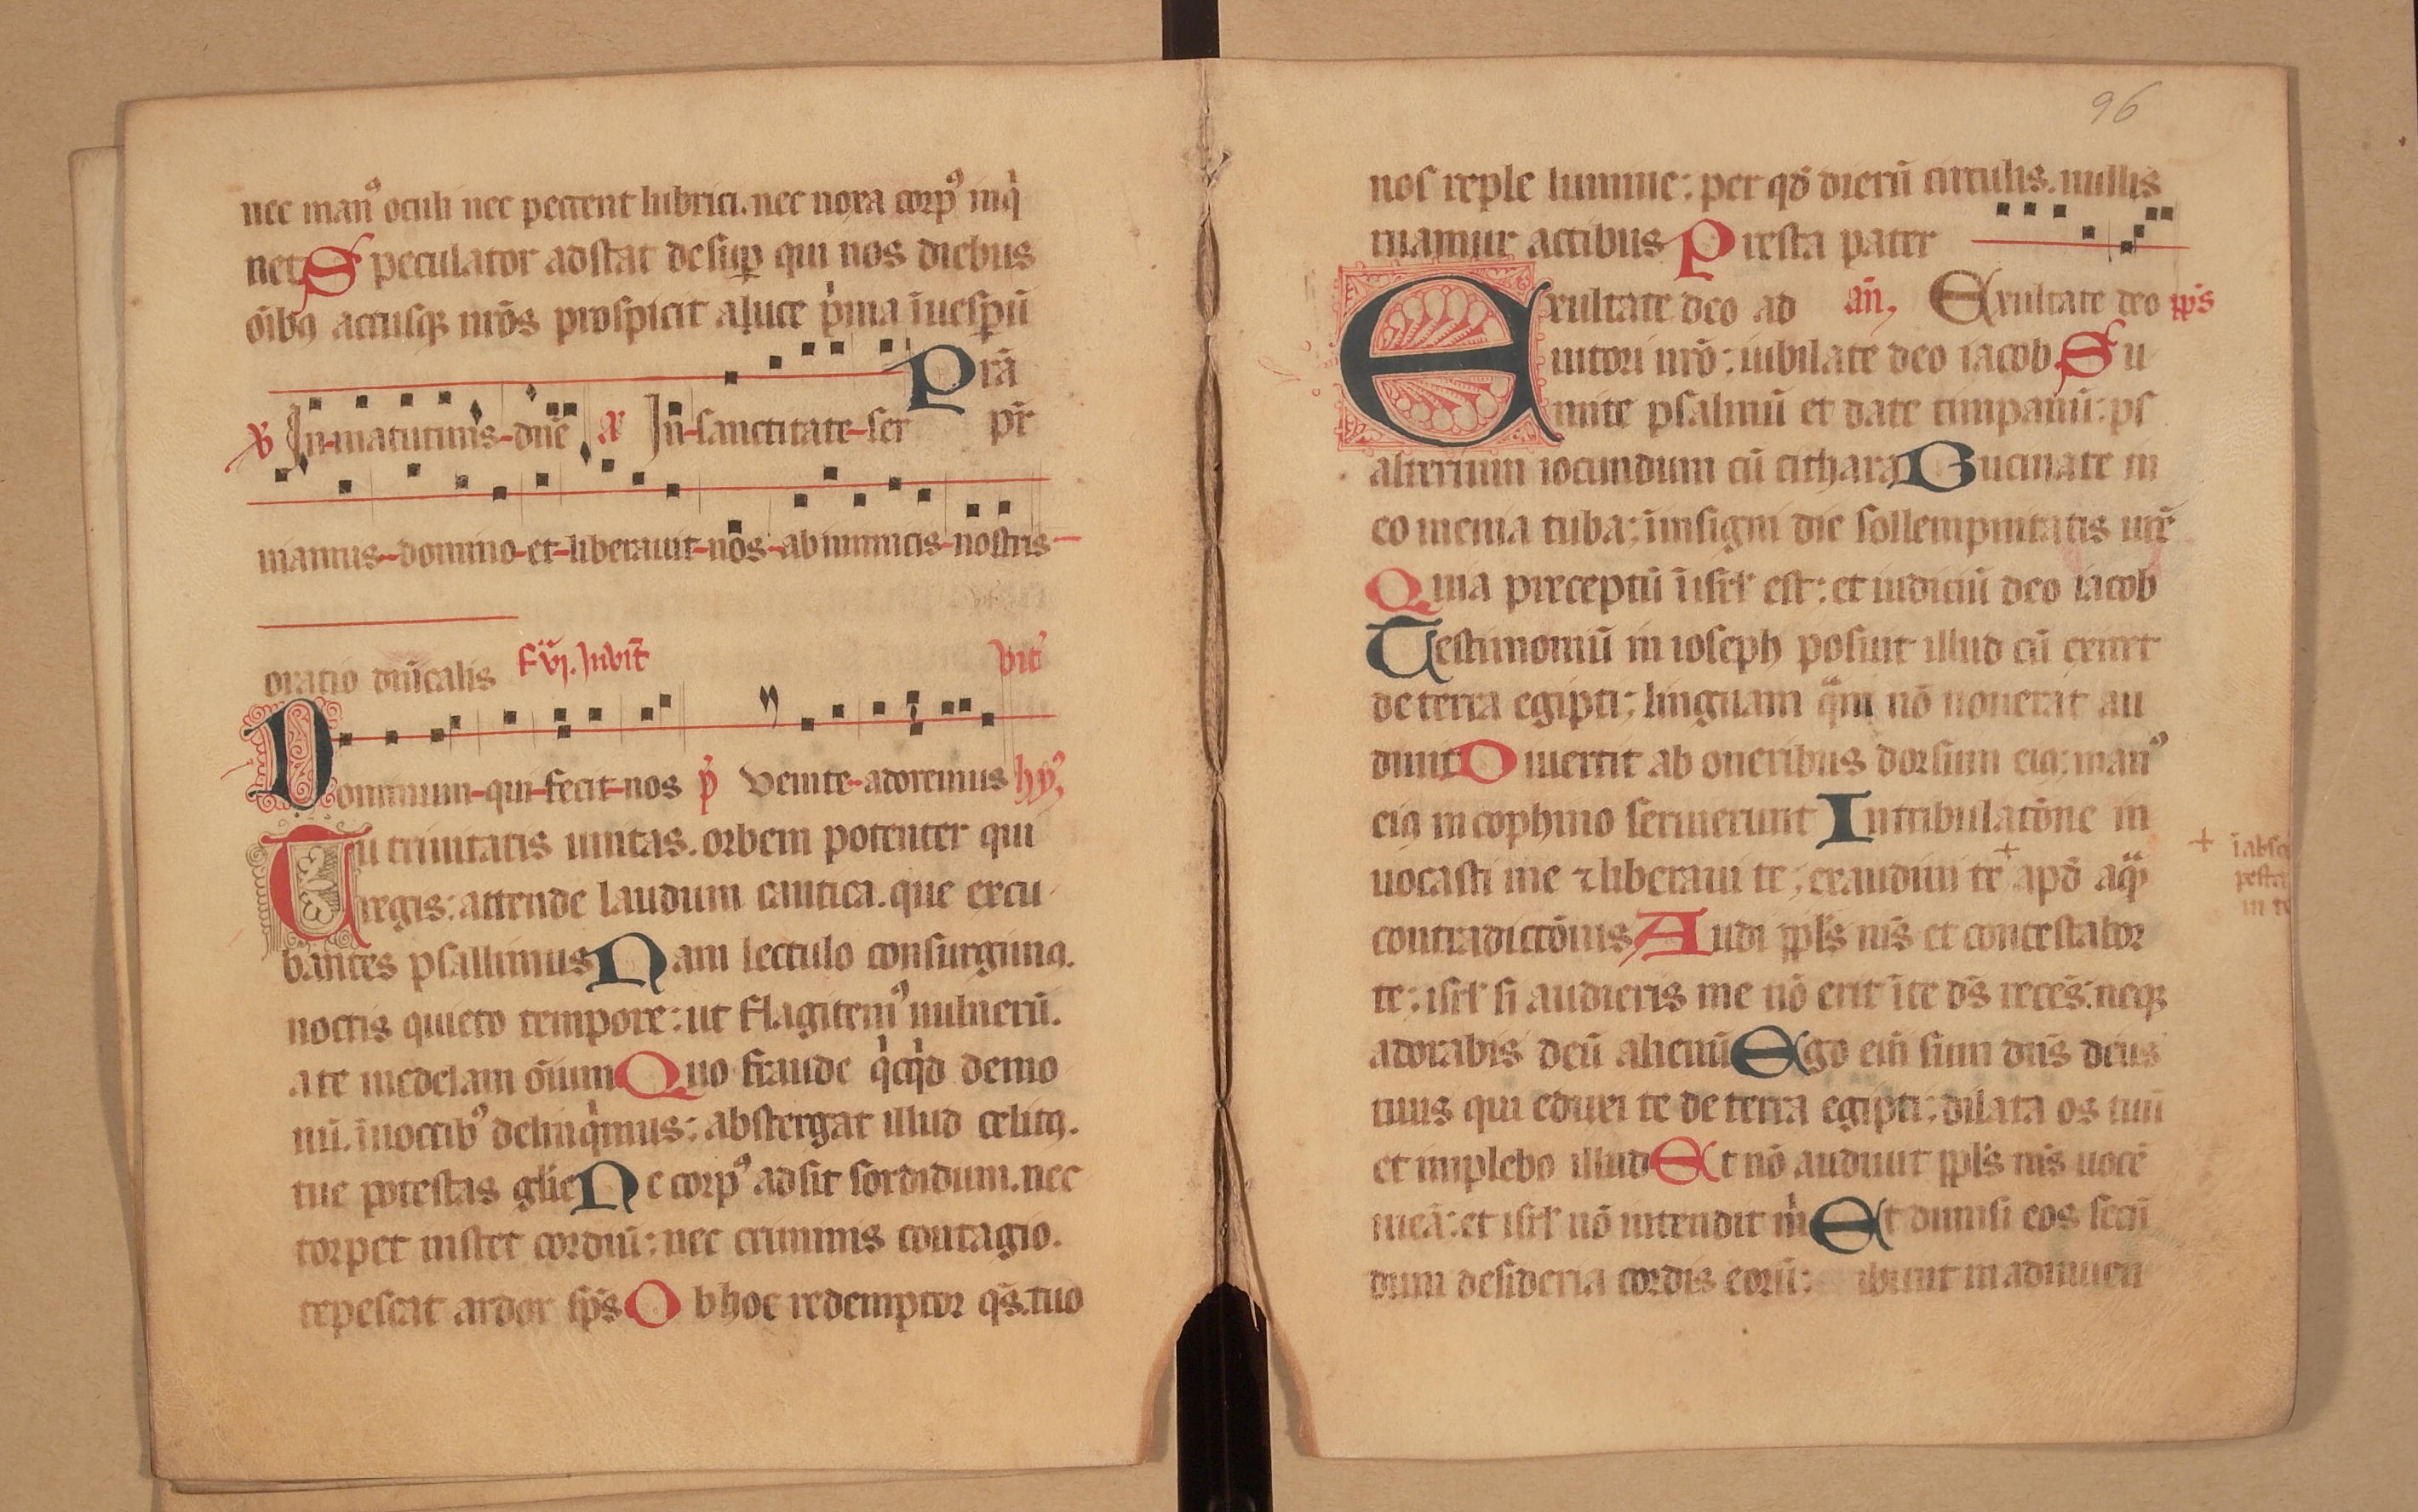 nec man᷒ oculi nec peccent lubrici. nec noxa corp᷒ inq̇
net Speculator adstat desuꝑ qui nos diebus
oı̄bꝫ actusqꝫ nr̄os prospicit a luce pͥma ī uesꝑū
Prā
℣ In matutinis dn̄e ℟ In sanctitate ser pr̄
uiamus domino et liberauit nos ab inimicis nostris
oratio dn̄icalis F. vj. Inuit̄ Vit᷒
Dominum qui fecit nos p̄ Venite adoremus hy᷒
Tu trinitatis unitas. orbem potenter qui
regis: attende laudum cantica. que excu
bantes psallimus Nam lectulo consurgimꝰ.
noctis quieto tempore: ut flagitem᷒ uulnerū.
a te medelam oı̄um Quo fraude qͥcqͥd demo
nū. ī noctib᷒ delinqͥmus: abstergat illud celitꝰ.
tue potestas gl̄ie Ne corp᷒ adsit sordidum. nec
torpor instet cordiū: nec criminis contagio.
tepescat ardor sp̄s Ob hoc redemptor qs̄. tuo
96
nos reple lumine: per qd̄ dierū circulis. nullis
ruamur actibus Presta pater
Exultate deo ad an̄, Exultate deo pp̄s
iutori nrō: iubilate deo iacob. Su
mite psalmū et date timpanū: ps
alterium iocundum cū cithara Bucinate in
eo menia tuba: in insigni die sollempnitatis ur̄e
Quia preceptū ī isrl̄ est: et iudiciū deo iacob
Testimoniū in ioseph posuit illud cū exiret
de terra egipti: linguam qᷓm nō nouerat au
diuit Diuertit ab oneribus dorsum eiꝰ: man᷒
eiꝰ in cophino seruierunt In tribulatōne in
uocasti me ⁊ liberaui te: exaudiui te + apd̄ aqᷓ
+ ī absc
pestat
in te
contradictōnis Audi ppl̄s m̄s et contestabor
te: isrl̄ si audieris me nō erit ī te ds̄ recēs: neqꝫ
adorabis deū alienū Ego em̄ sum dn̄s deus
tuus qui eduxi te de terra egipti: dilata os tuū
et implebo illud Et nō audiuit ppl̄s m̄s uocē
meā: et isrl̄ nō intendit mͥ Et dimisi eos secū
dum desideria cordis eorū: ibunt in adinuen